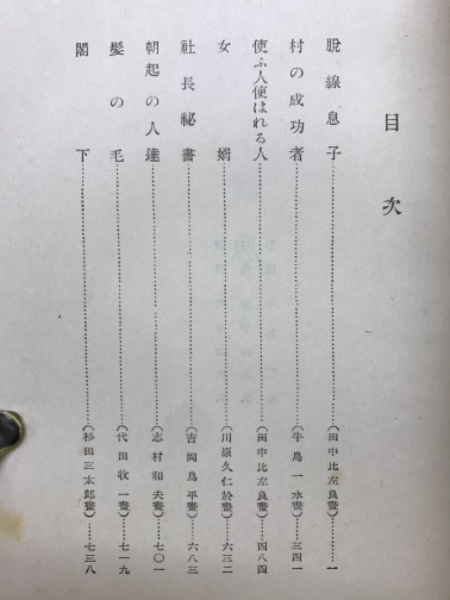 目次
脫線息子……………(田中比左良畫)……一
村の成功者……………(牛島一水畫)……三四一
使ふ人使はれる人……………(田中比左良畫)……四八四
女婿……………(川原久仁於畫)……六三二
社長祕書……………(吉岡鳥平畫)……六八三
朝起の人達……………(志村和夫畫)……七〇一
髮の毛……………(代田收一畫)……七一九
閣下……………(杉田三太郞畫)……七三八